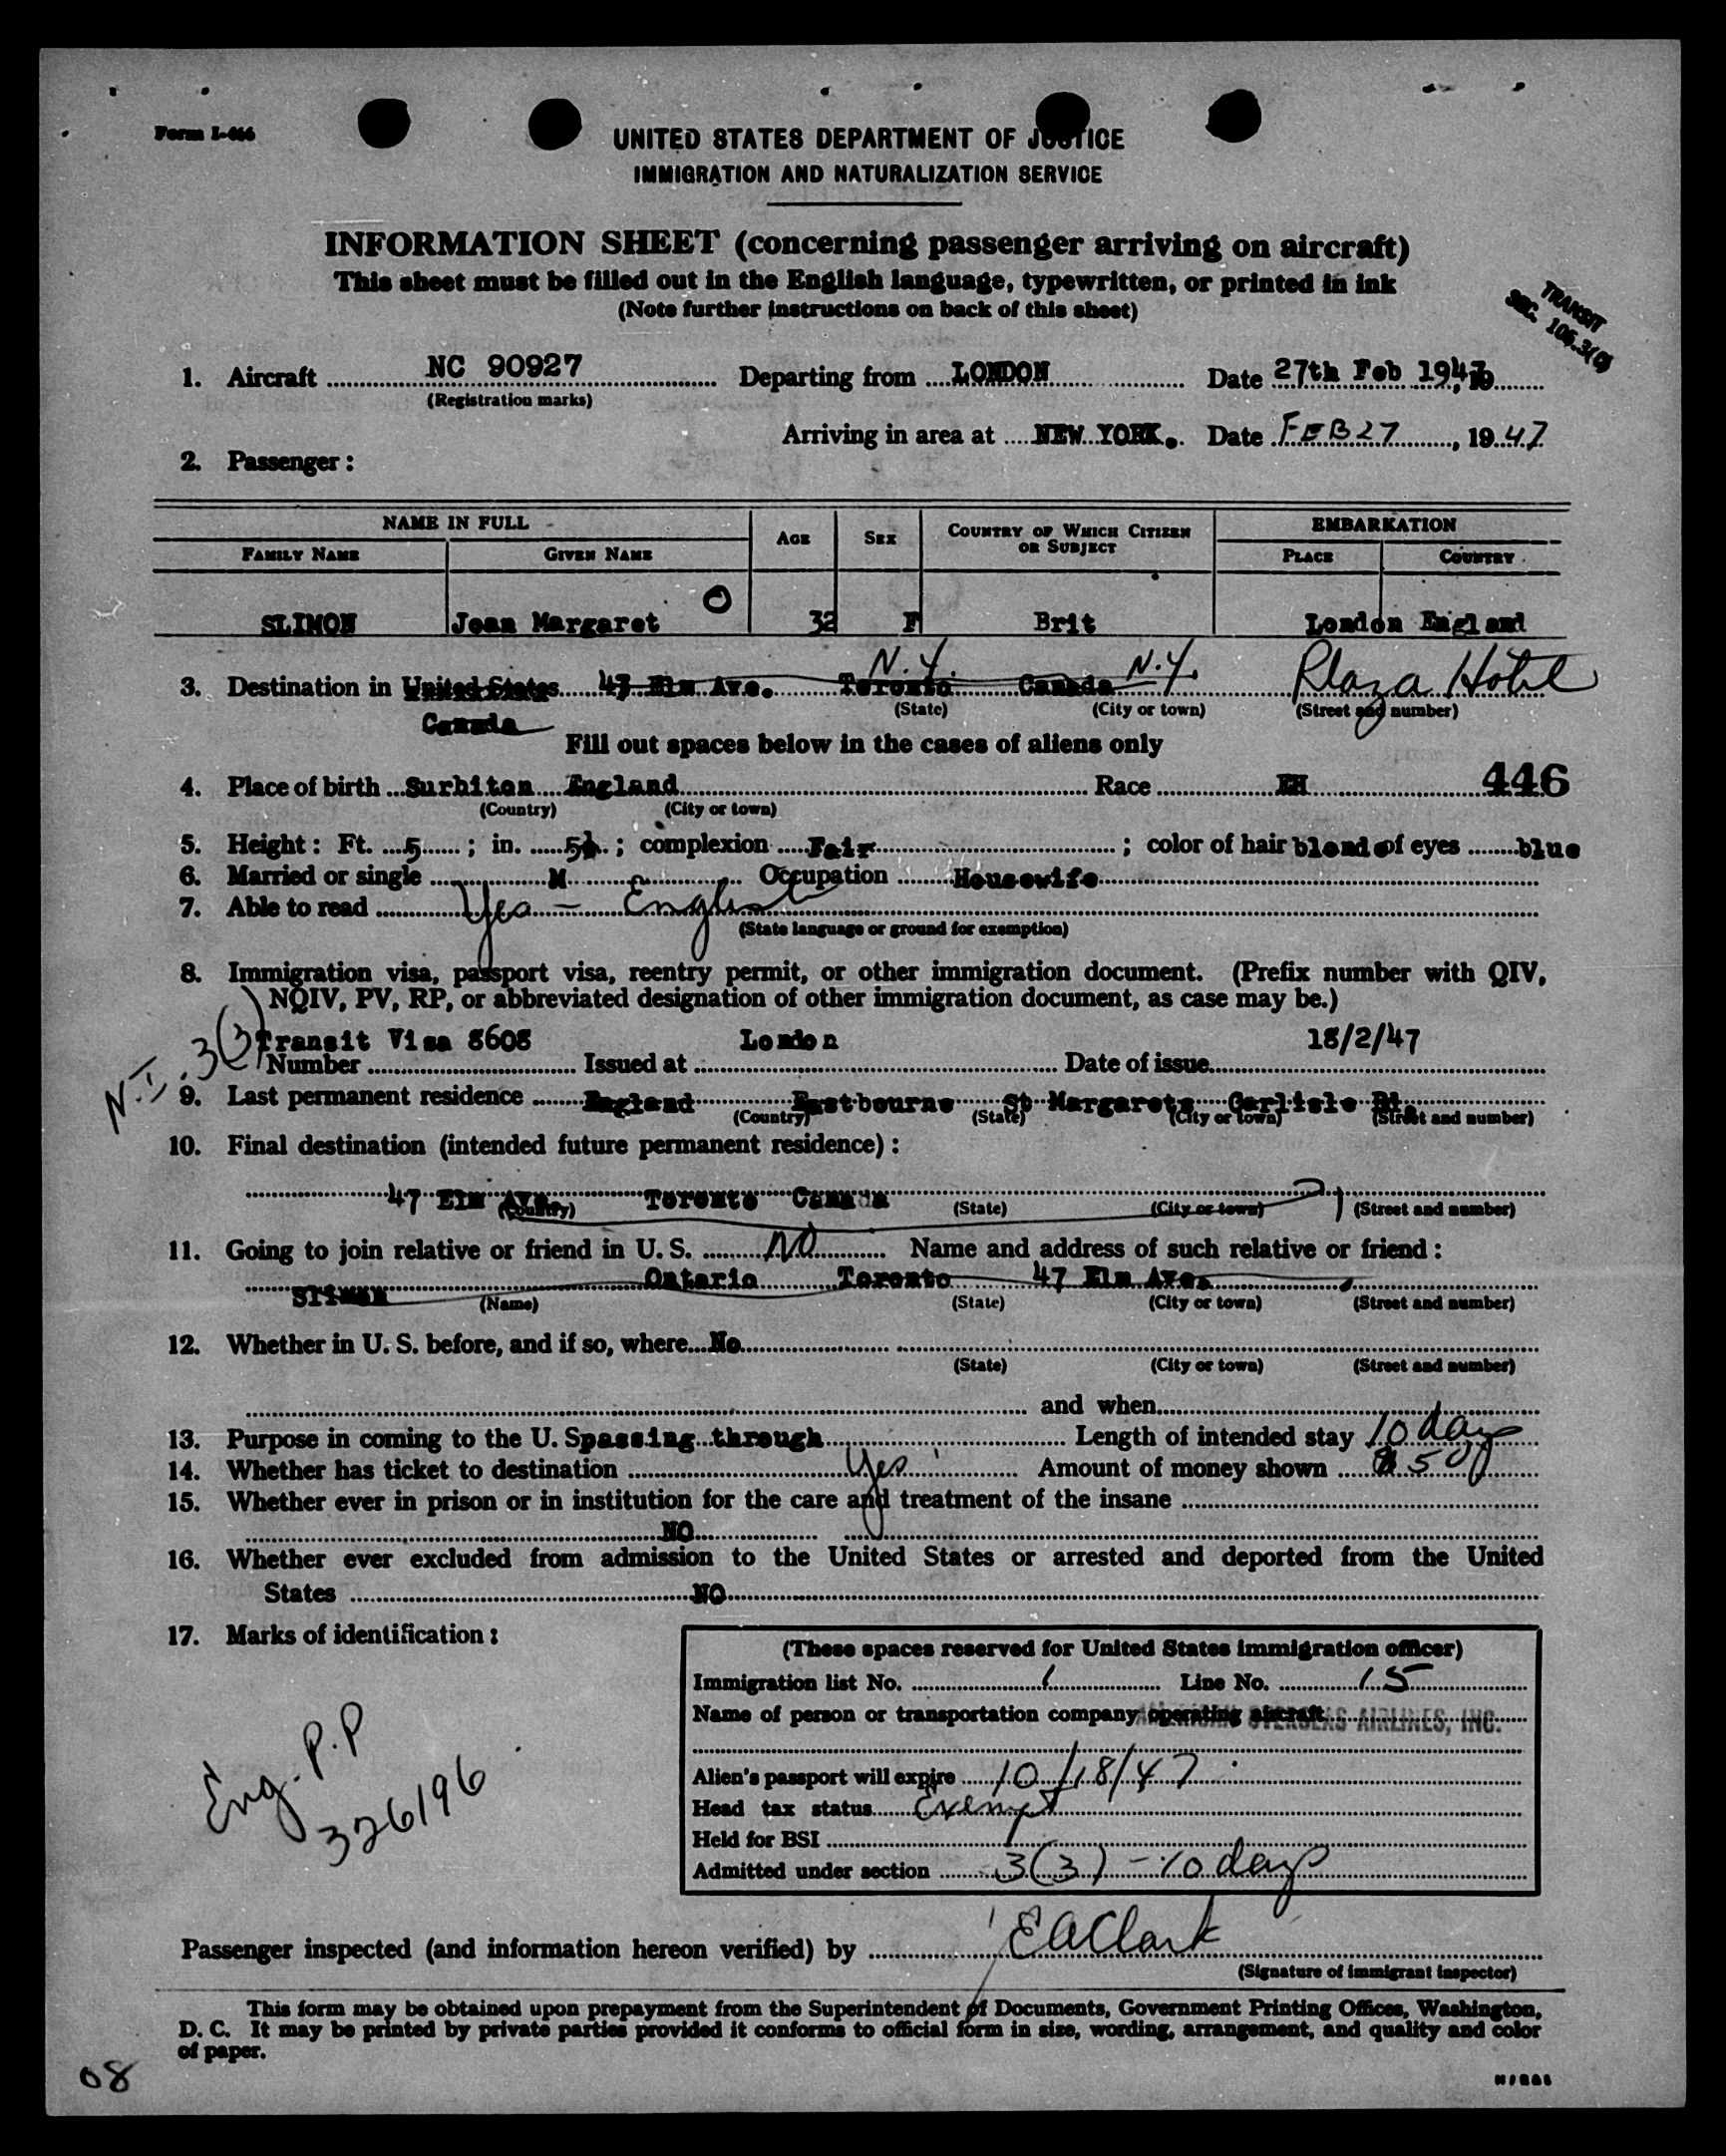 Form I-466
UNITED STATES DEPARTMENT OF JUSTICE
IMMIGRATION AND NATURALIZATION SERVICE
INFORMATION SHEET (concerning passenger arriving on aircraft)
This sheet must be filled out in the English language, typewritten, or printed in ink
(Note further instructions on back of this sheet)
TRANSIT
SEC. 106.3(
1. Aircraft NC 90927 Departing from LONDON Date 27th Feb 1947, 19
(Registration marks)
Arriving in area at NEW YORK. Date FEB 27, 1947
2. Passenger:
NAME IN FULL AGE SEX COUNTRY OF WHICH CITIZEN OR SUBJECT EMBARKATION
FAMILY NAME GIVEN NAME PLACE COUNTRY
SLIMON Jean Margaret O 32 F Brit London England
N.Y. N.Y.
3. Destination in United States 47 Elm Ave. Toronto Canada Plaza Hotel
(State) (City or town) (Street and number)
Canada
Fill out spaces below in the cases of aliens only
4. Place of birth Surbiton England Race EH 446
(Country) (City or town)
5. Height: Ft. 5; in. 5½; complexion Fair; color of hair blonde of eyes blue
6. Married or single M Occupation Housewife
7. Able to read Yes - English
(State language or ground for exemption)
8. Immigration visa, passport visa, reentry permit, or other immigration document. (Prefix number with QIV,
NQIV, PV, RP, or abbreviated designation of other immigration document, as case may be.)
N.I. 3(3)
Transit Visa 8608 London 18/2/47
Number Issued at Date of issue
9. Last permanent residence England Eastbourne St Margarets Carlisle Rd.
(Country) (State) (City or town) (Street and number)
10. Final destination (intended future permanent residence):
47 Elm Ave. Toronto Canada
(Country) (State) (City or town) (Street and number)
11. Going to join relative or friend in U. S. NO Name and address of such relative or friend:
Slimon Ontario Toronto 47 Elm Ave.
(Name) (State) (City or town) (Street and number)
12. Whether in U. S. before, and if so, where No
(State) (City or town) (Street and number)
and when
13. Purpose in coming to the U. S passing through Length of intended stay 10 days
14. Whether has ticket to destination Yes Amount of money shown $ 500
15. Whether ever in prison or in institution for the care and treatment of the insane
NO
16. Whether ever excluded from admission to the United States or arrested and deported from the United
States NO
17. Marks of identification:
Eng. P.P
326196
(These spaces reserved for United States immigration officer)
Immigration list No. 1 Line No. 15
Name of person or transportation company operating aircraft AMERICAN OVERSEAS AIRLINES, INC.
Alien's passport will expire 10/18/47
Head tax status Exempt
Held for BSI
Admitted under section 3(3) - 10 days
Passenger inspected (and information hereon verified) by EAClark
(Signature of immigrant inspector)
This form may be obtained upon prepayment from the Superintendent of Documents, Government Printing Offices, Washington,
D. C. It may be printed by private parties provided it conforms to official form in size, wording, arrangement, and quality and color
of paper.
08